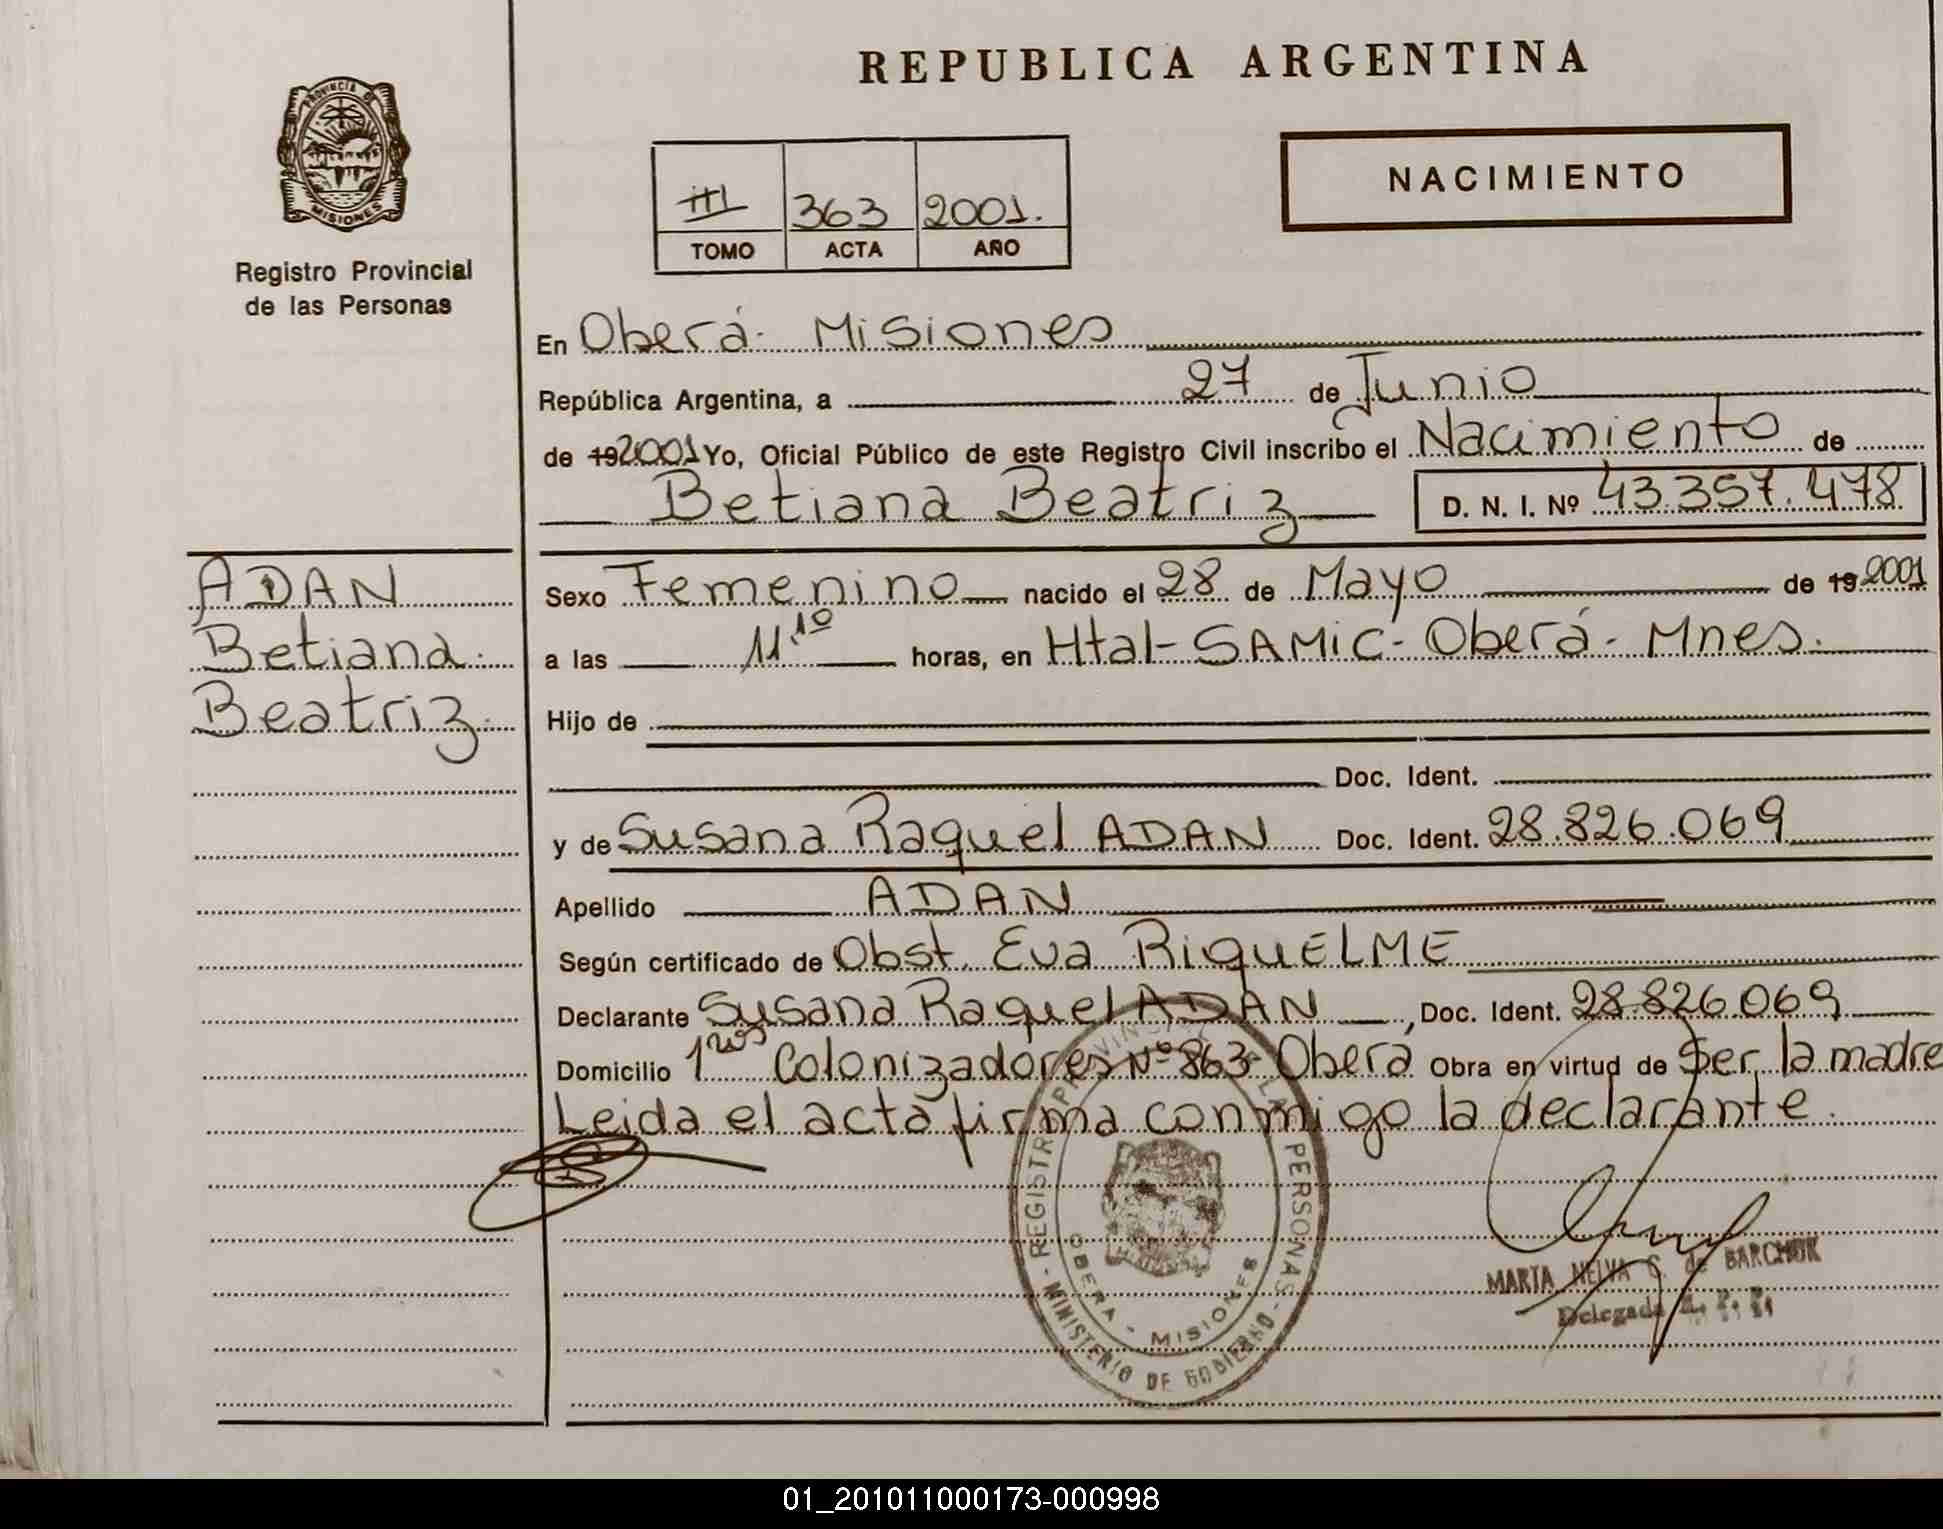 REPUBLICA ARGENTINA
PROVINCIA DE
MISIONES
Registro Provincial
de las Personas
NACIMIENTO
III 363 2001.
TOMO ACTA AÑO
En Oberá - Misiones
República Argentina, a 27 de Junio
de 192001 Yo, Oficial Público de este Registro Civil inscribo el Nacimiento de
Betiana Beatriz D. N. I. Nº 43.357.478
ADAN
Betiana
Beatriz
Sexo Femenino nacido el 28 de Mayo de 19 2001
a las 11.10 horas, en Htal-SAMIC- Oberá- Mnes.
Hijo de
Doc. Ident.
y de Susana Raquel ADAN Doc. Ident. 28.826.069
Apellido ADAN
Según certificado de Obst. Eva RiquELME
Declarante Susana Raquel ADAN, Doc. Ident. 28.826.069
Domicilio 1ros Colonizadores Nº 863 Oberá Obra en virtud de Ser la madre
Leida el acta firma conmigo la declarante.
REGISTRO PROVINCIAL DE LAS PERSONAS - MINISTERIO DE GOBIERNO -
OBERA - MISIONES
MARTA NELVA C. de BARCHUK
Delegada
01_201011000173-000998